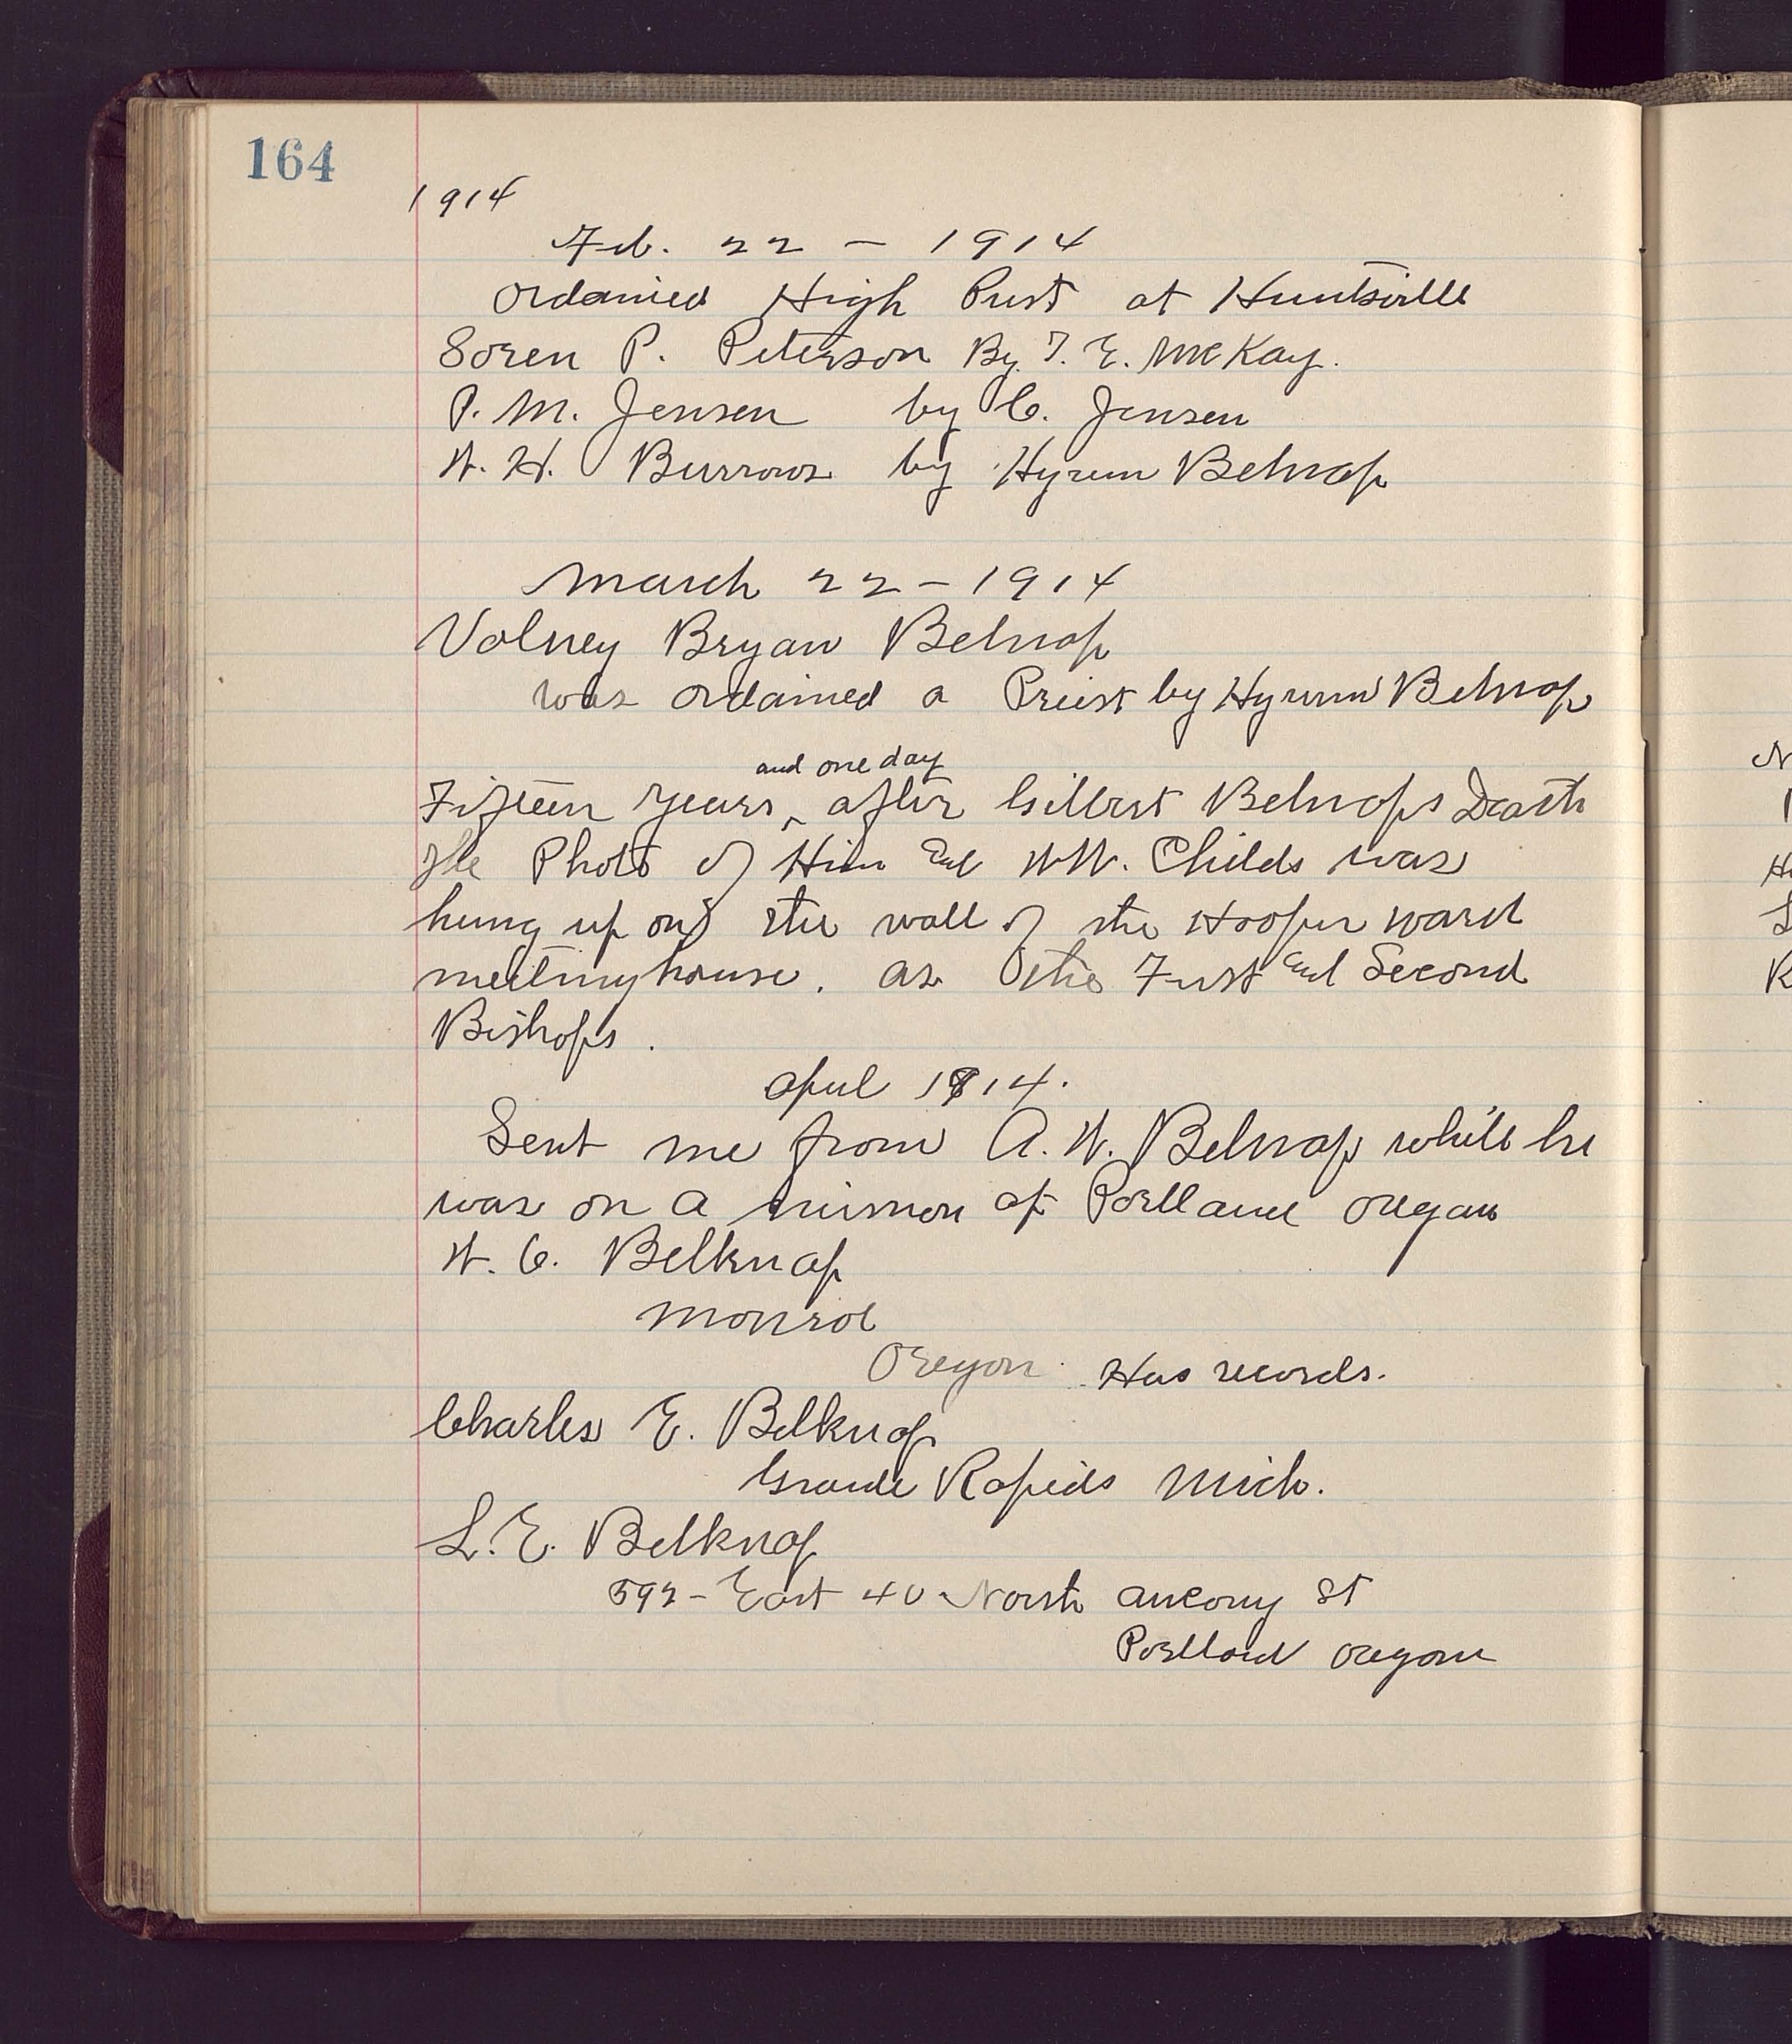 164
1914
Feb. 22 - 1914
Ordained High Prist at Huntsville
Soren P. Peterson By T. E. McKay.
P. M. Jensen by C. Jensen
W. H. Burrows by Hyrum Belnap
March 22 - 1914
Volney Bryan Belnap
was ordained a Preist by Hyrum Belnap
and one day
Fifteen years ^ after Gilbert Belnaps Death
the Photo of Him and W.W. Childs was
hung up on the wall of the Hooper ward
meetinghouse. as the First and Second
Bishops.
April 1914.
Sent me from A. W. Belnap while he
was on a mission at Portland Oregan
W. C. Belknap
Monroe
Oregon. Has records.
Charles E. Belknap
Grande Rapids Mich.
L. E. Belknap
592 - East 40 North St
Portland Oregon